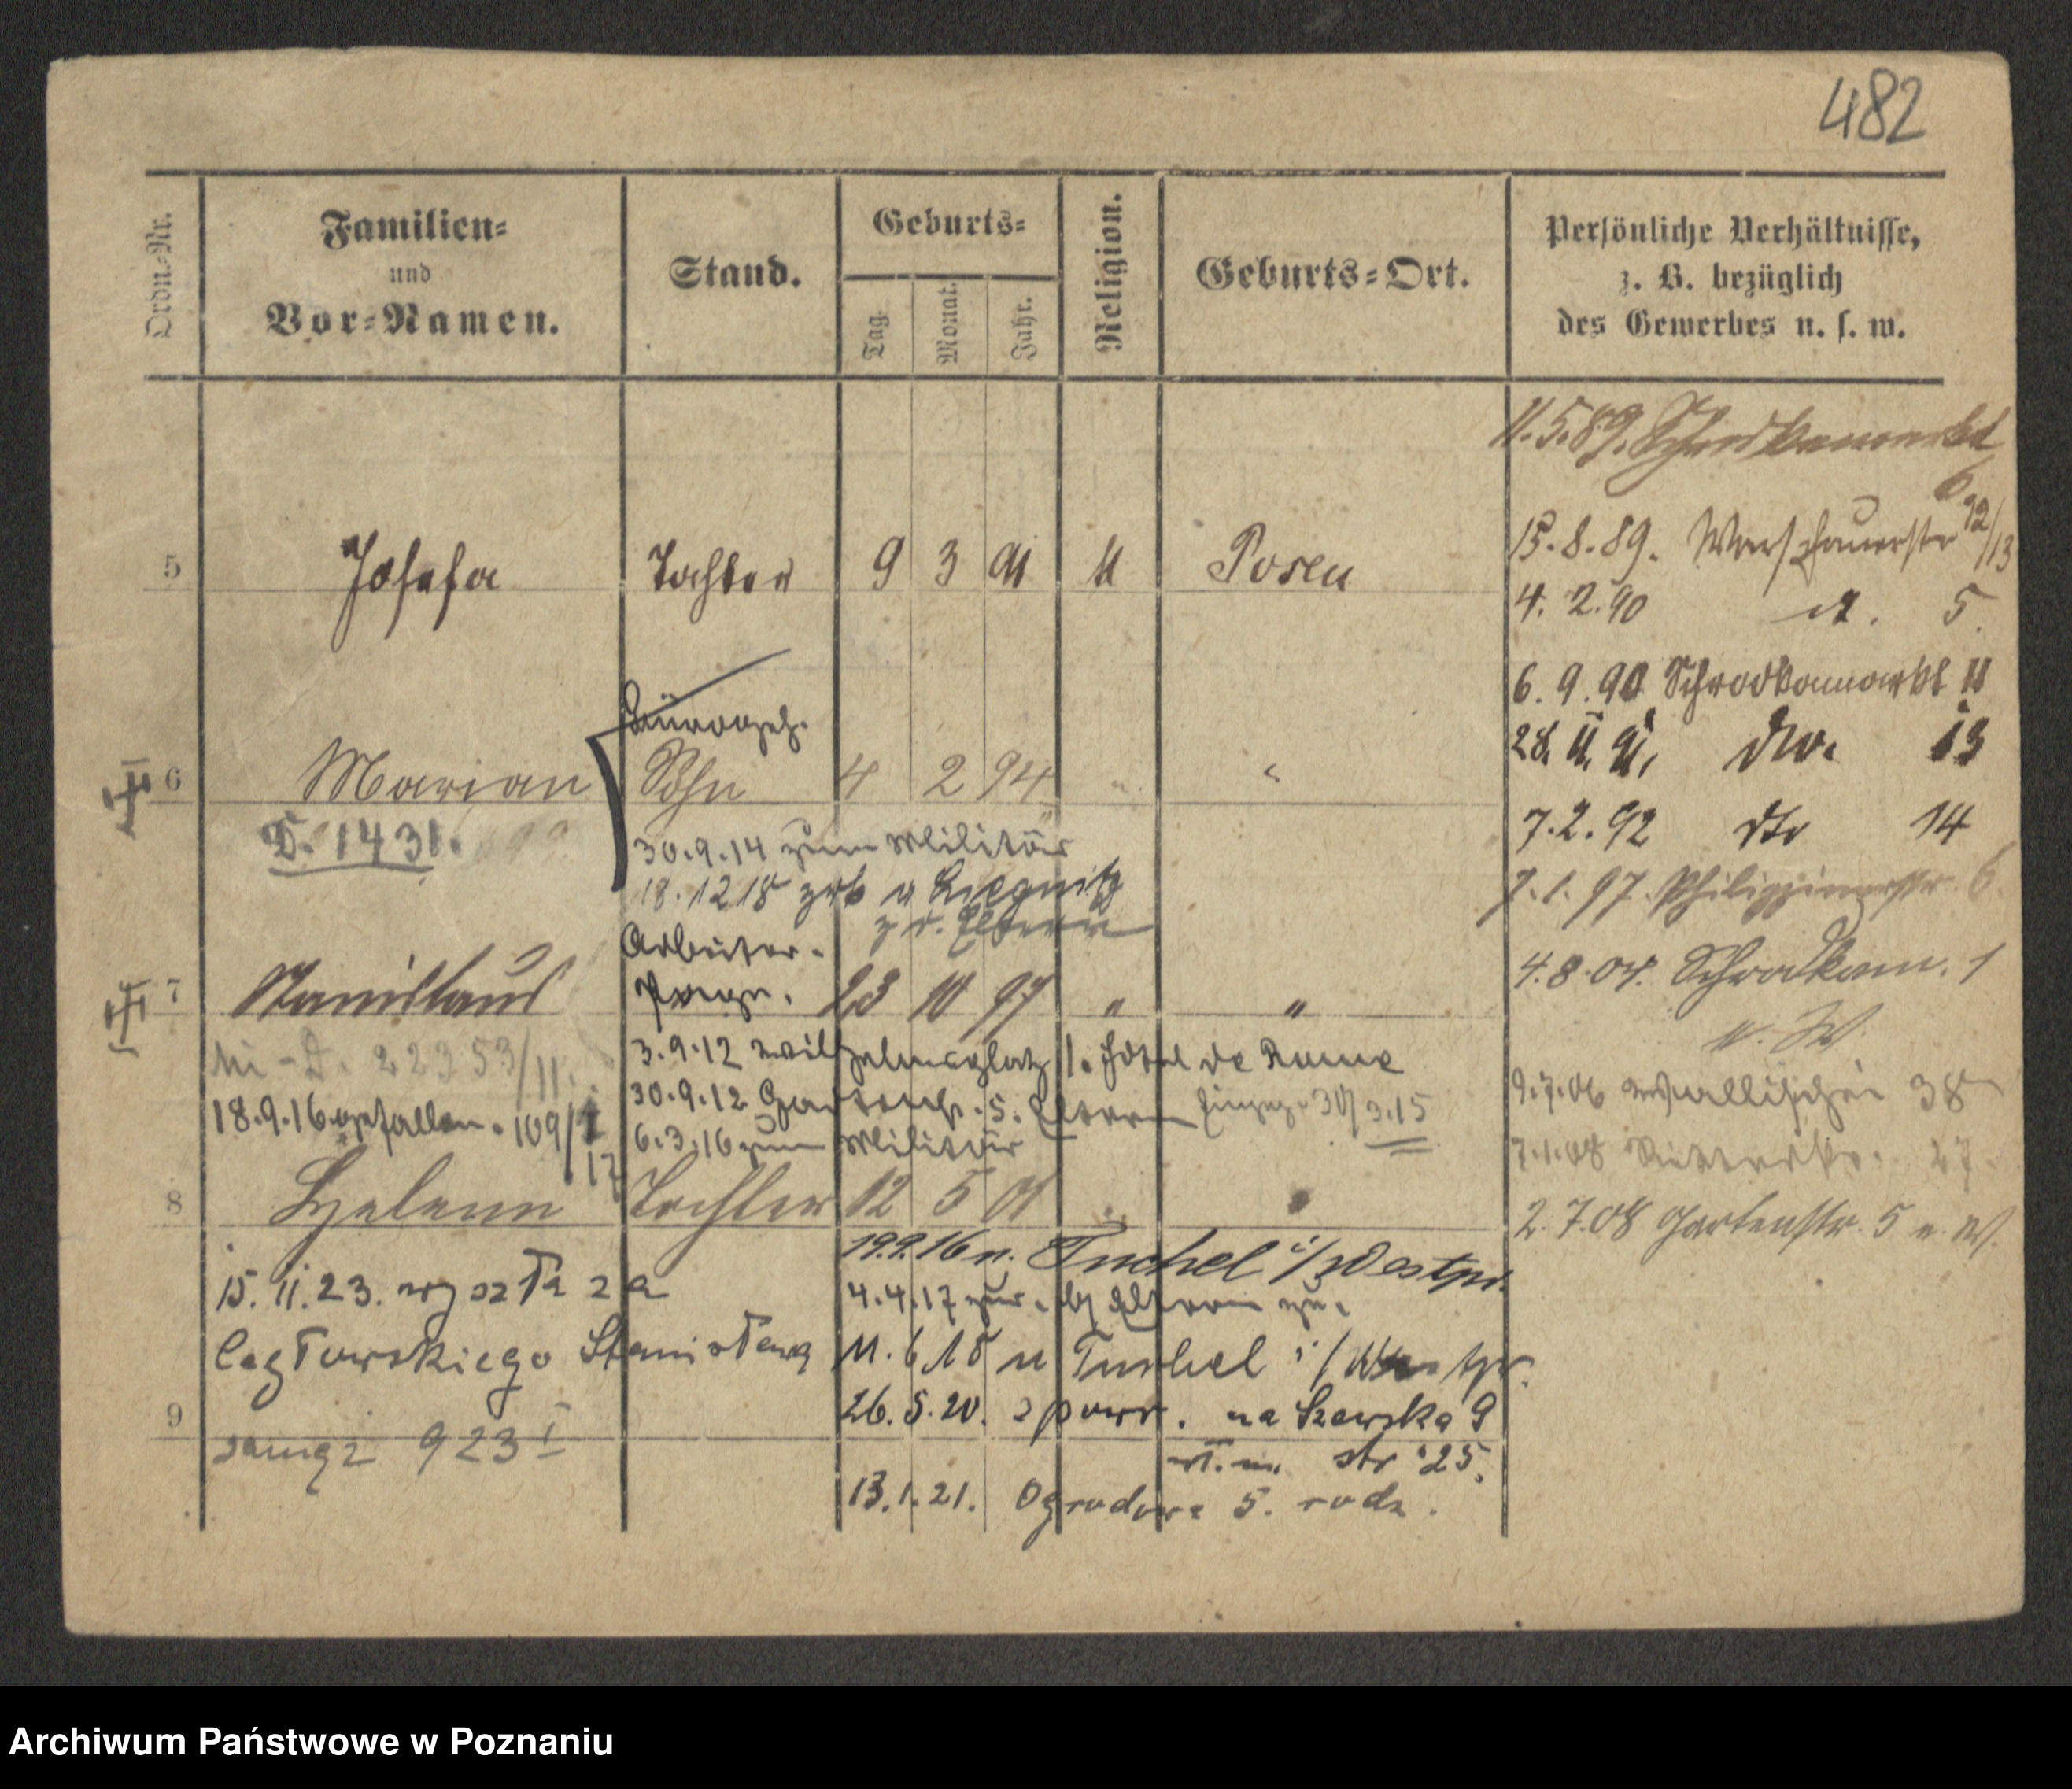 482
Ordn.-Nr.
Familien-
und
Vor-Namen.
Stand.
Geburts-
Tag.
Monat.
Jahr.
Religion.
Geburts-Ort.
Persönliche Verhältnisse,
z. B. bezüglich
des Gewerbes u. s. w.
11.5.89. Schrodkamarkt
6.
5 Josefa Tochter 9 3 91 Posen
15.8.89. Warschauerstr 12/13
4.2.90 5.
6.9.90 Schrodkamarkt 11
28. 11. 91. dto. 13
6 Marian Sohn 4 2 94 "
D. 1431.
7.2.92 dto 14
30.9.14 zum Militär
18.12 18 zrk v Liegnitz
z d. Eltern
7.1.97. Philippinerstr. 6.
Arbeiter.
7 Stanislaus 23 10 97 " "
4.8.04. Schrodkam. 1
n. W.
22353/11.
3.9.12 Wilhelmsplatz 1. Hotel de Rome
30.9.12 Gartenstr. 5. Eltern 30/3.15
18.9.16 gefallen. 109/1 17
6.3.16 zum Militär
9.7.06 Wallischei 38
7.1.08 Ritterstr. 27
8 Helena Tochter 12 5 01
2.7.08 Gartenstr. 5 n. W.
19.9.16 n. Tuchel i/Westpr.
15.11.23. wyszła za
4.4.17 zur. Eltern
Cegłowskiego Stanisława
11.6.18 n Tuchel i/Westpr.
26.5.20. z powr. na Szewska 9
9
zamąż 923 I
str 25.
13.1.21. Ogrodowa 5. rodz.
Archiwum Państwowe w Poznaniu